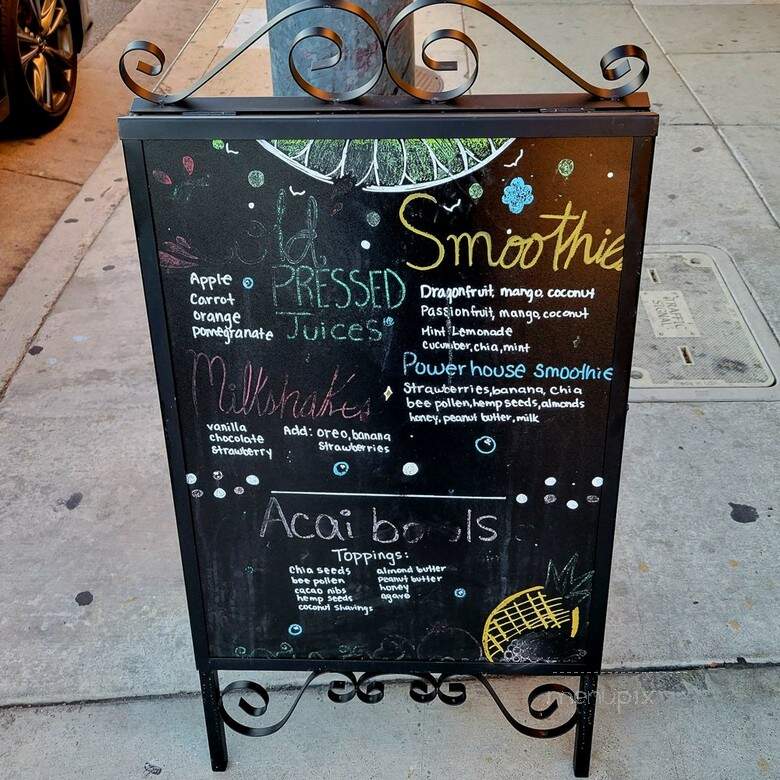 PRESSED
Juices
Apple
Carrot
orange
pomegranate
Smoothie
Dragonfruit, mango, coconut
Passionfruit, mango, coconut
Mint Lemonade
cucumber, chia, mint
Powerhouse smoothie
Strawberries, banana, chia
bee pollen, hemp seeds, almonds
honey, peanut butter, milk
Milkshakes
vanilla
chocolate
strawberry
Add: oreo, banana
strawberries
Acai
Toppings:
chia seeds
bee pollen
cacao nibs
hemp seeds
coconut shavings
almond butter
peanut butter
honey
agave
menupix